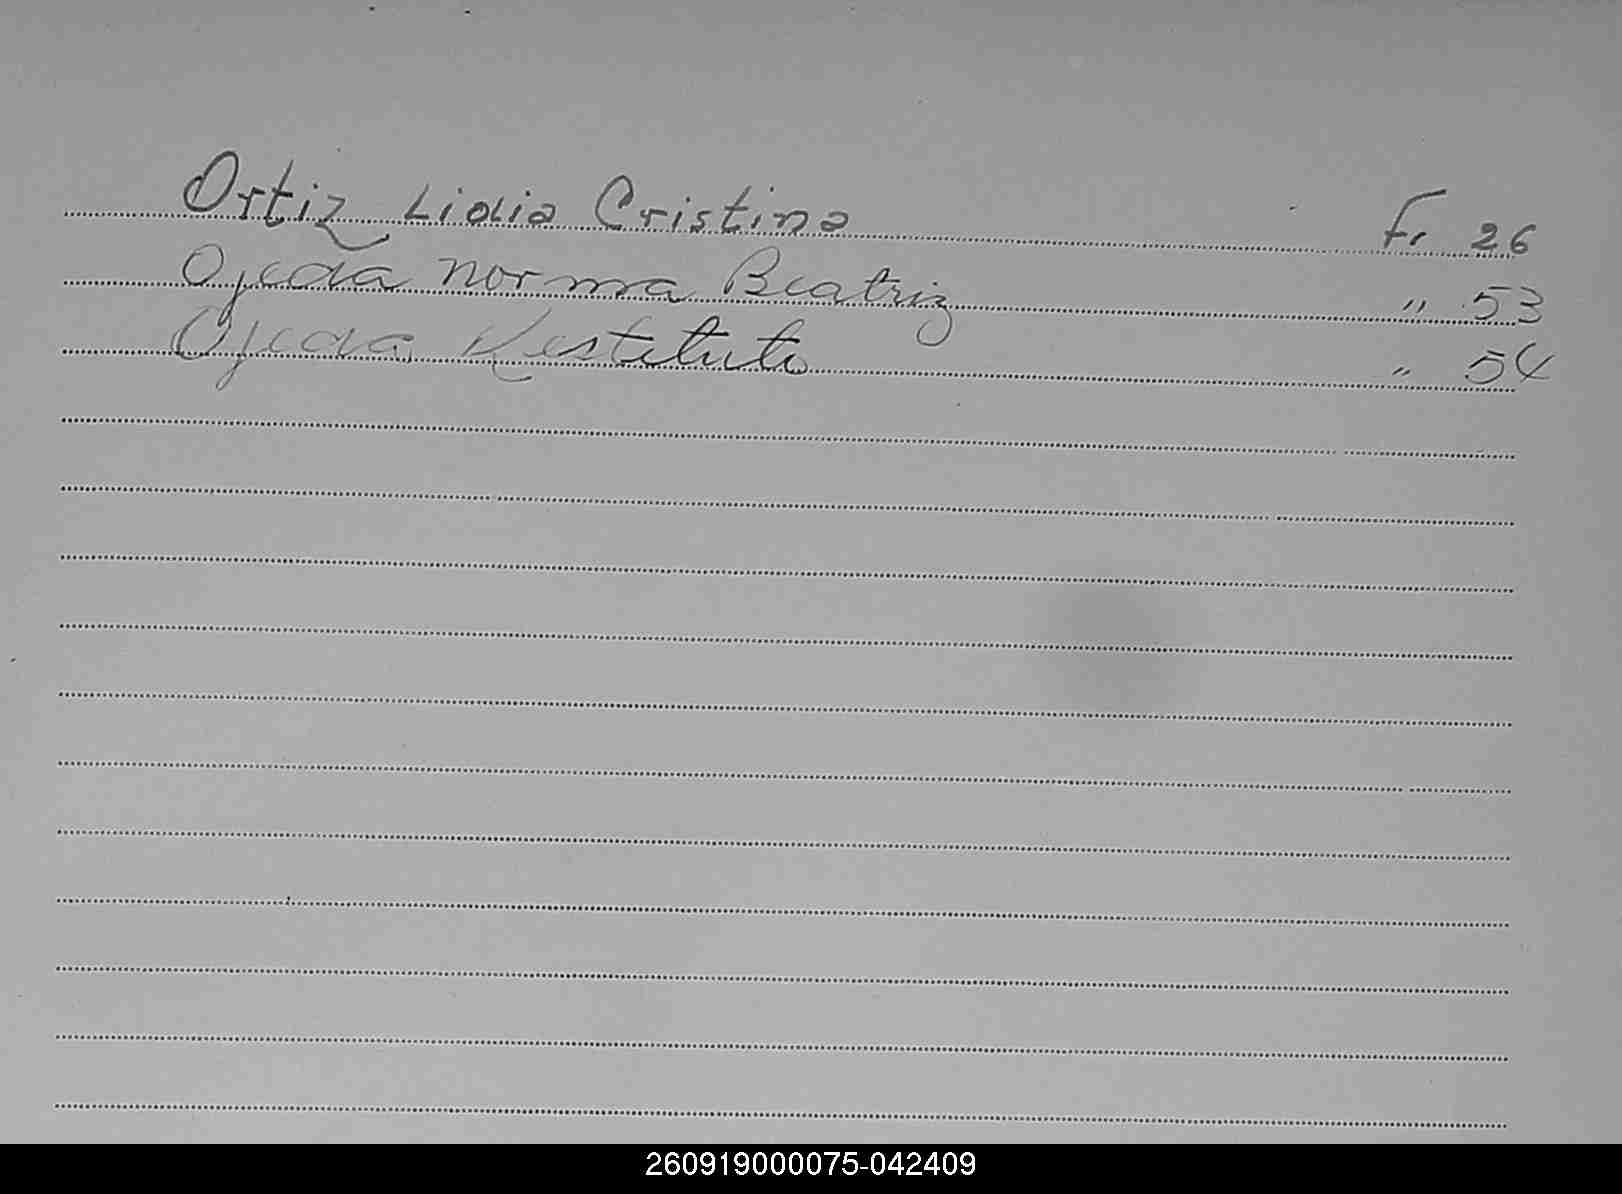 Ortiz Lidia Cristina F. 26
Ojeda Norma Beatriz " 53
Ojeda Restituto " 54
260919000075-042409